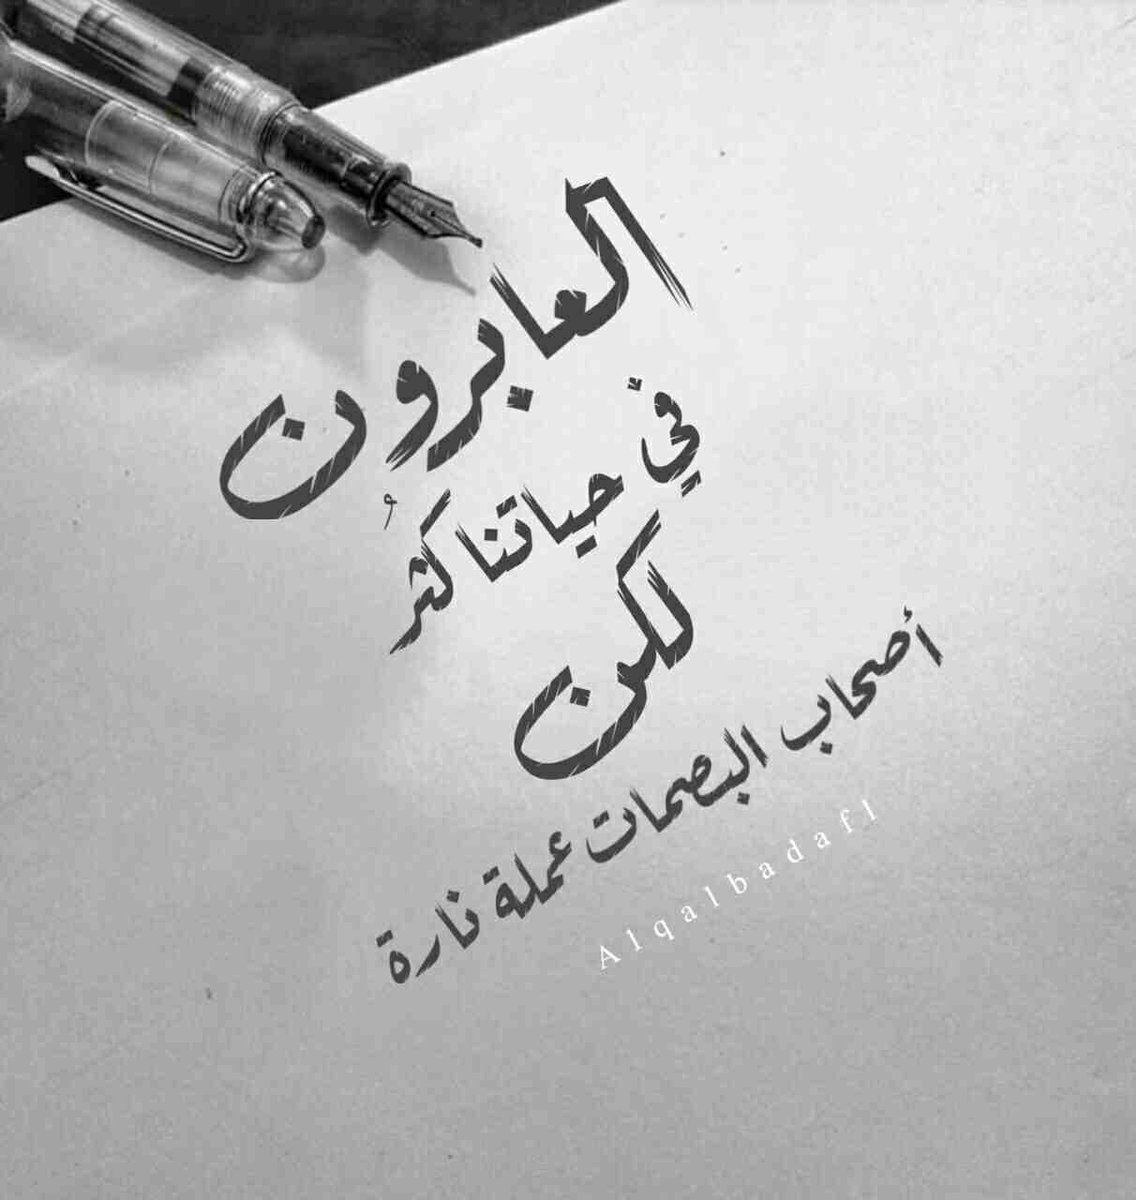 العابرون
في حياتنا كثرُ
لكن
أصحاب البصمات عملة نارة
Alqalbadafl